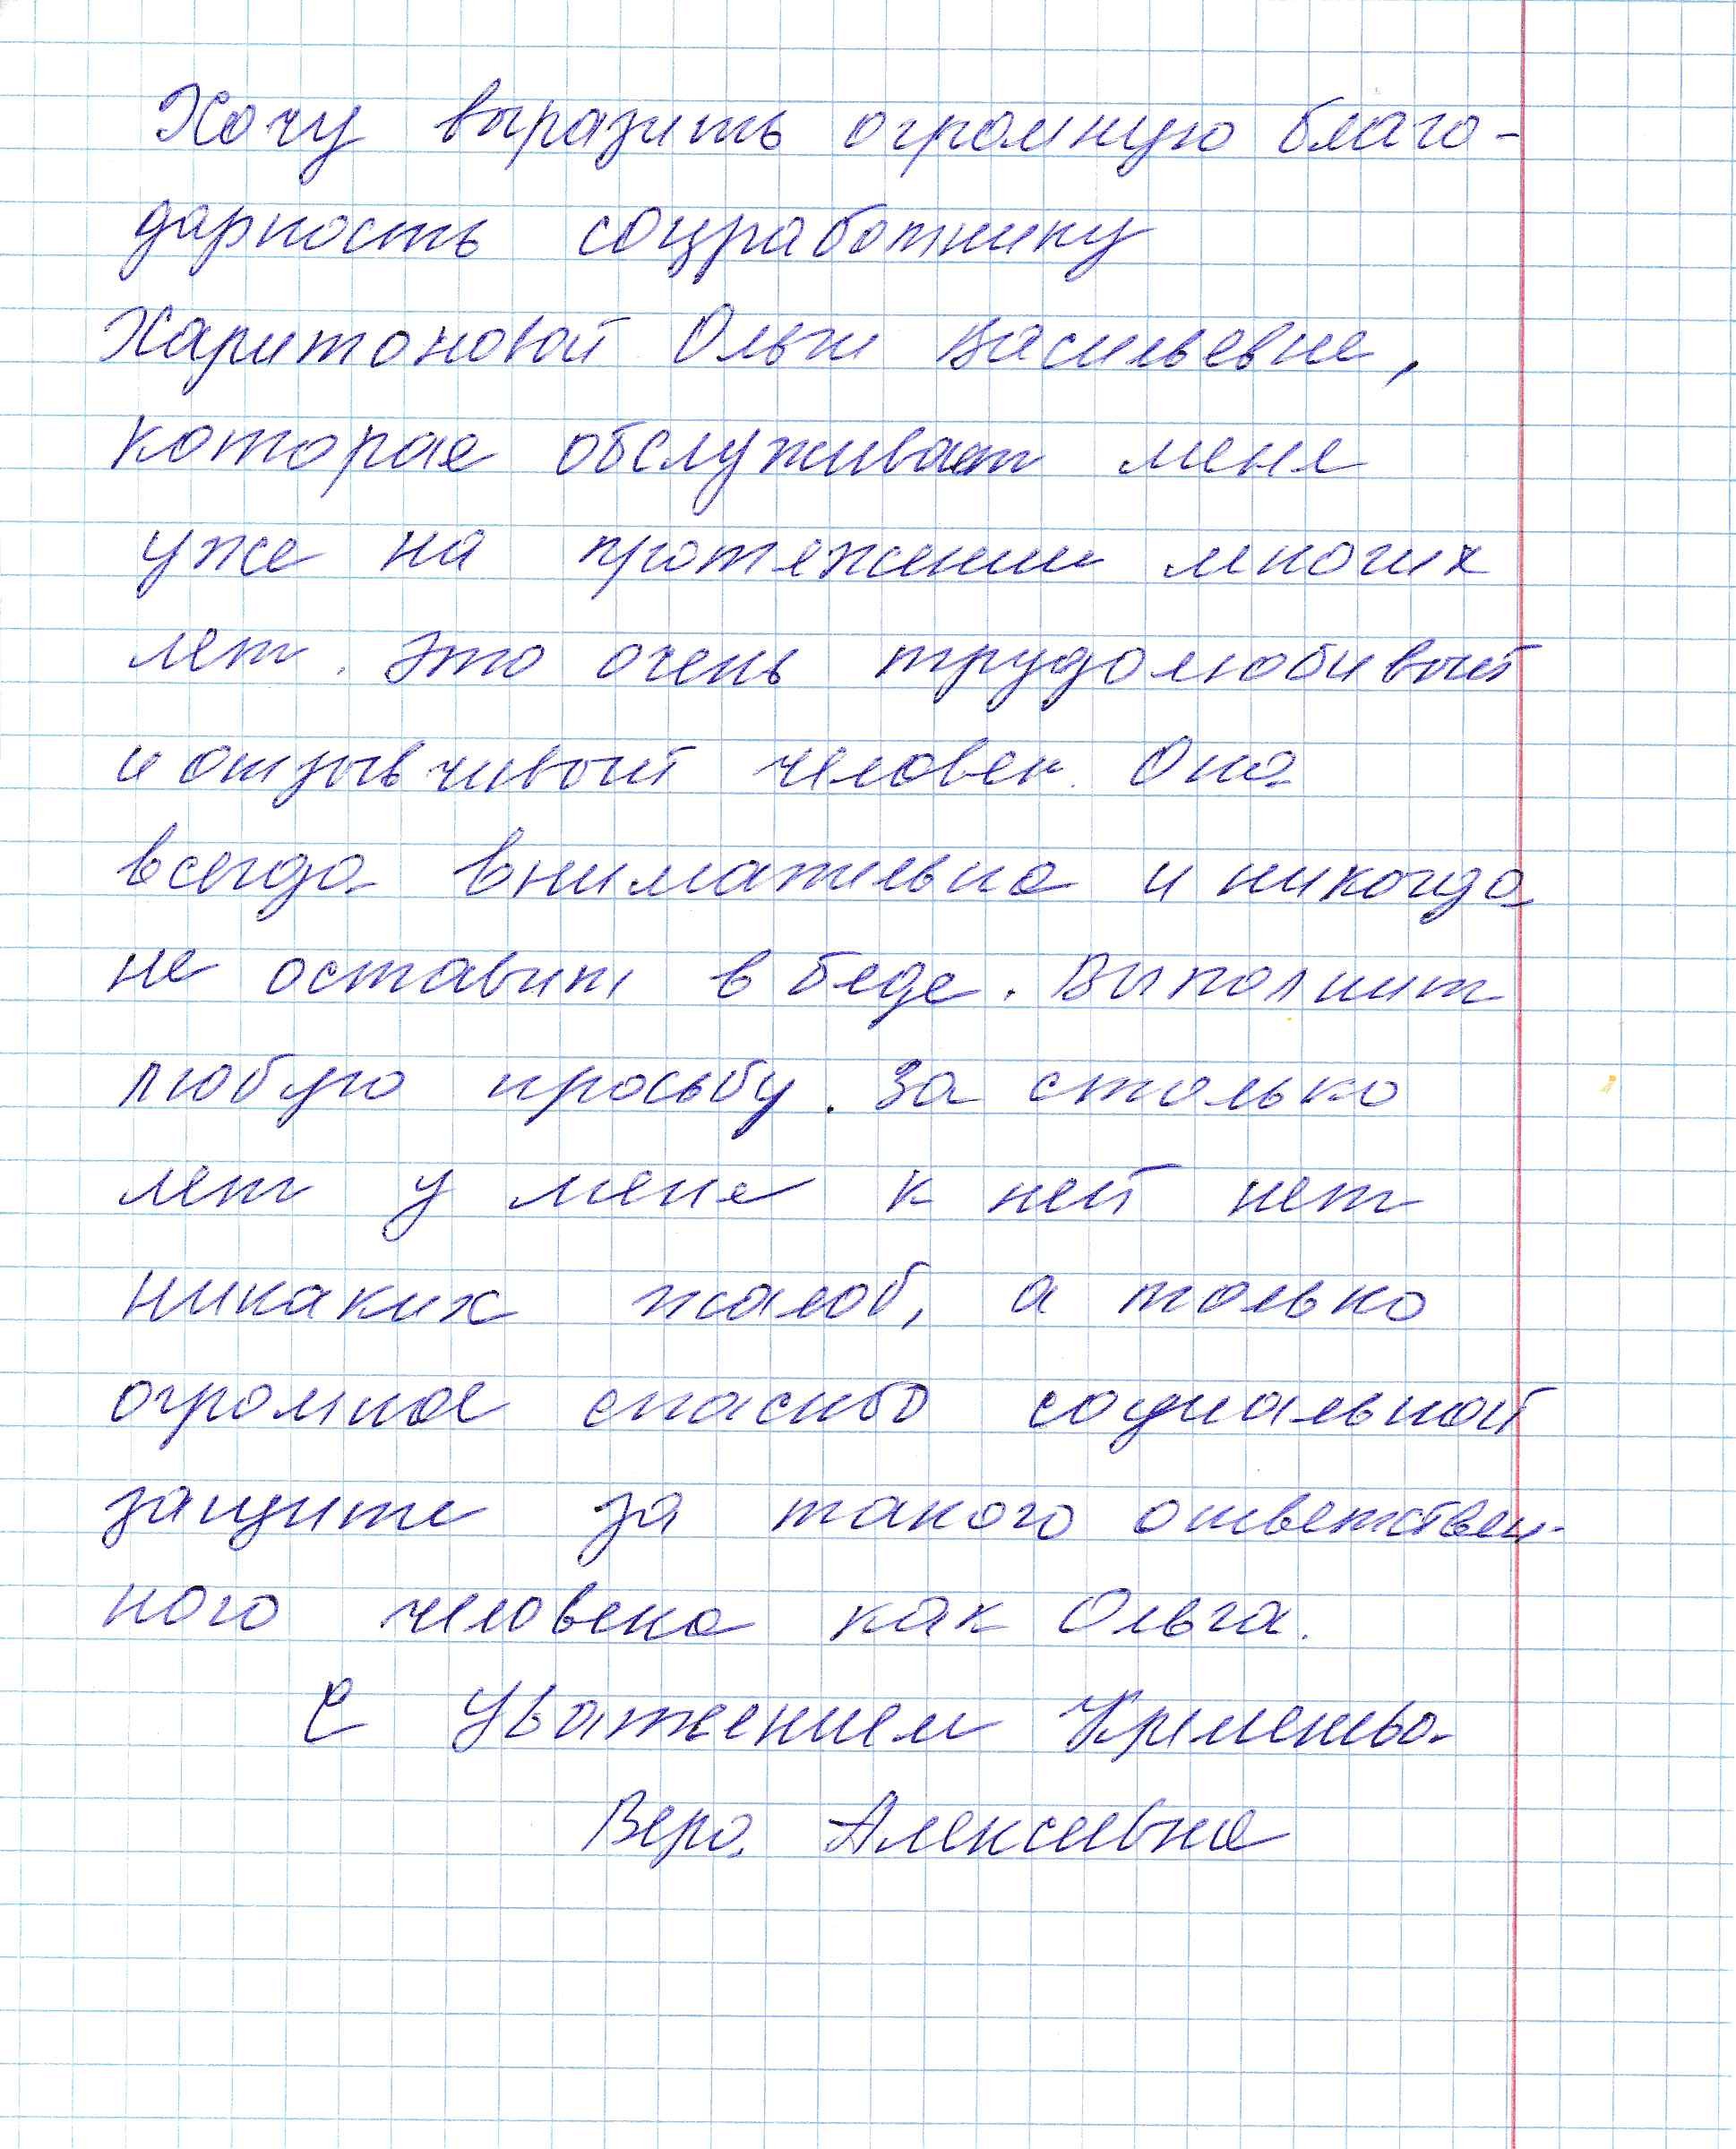 Хочу выразить огромную благо-
дарность соцработнику
Харитоновой Ольги Васильевне,
которая обслуживает меня
уже на протяжении многих
лет. Это очень трудолюбивый
и отзывчивый человек. Она
всегда внимательна и никогда
не оставит в беде. Выполнит
любую просьбу. За столько
лет у меня к ней нет
никаких жалоб, а только
огромное спасибо социальной
защите за такого ответствен-
ного человека как Ольга.
С уважением
Вера Алексеевна